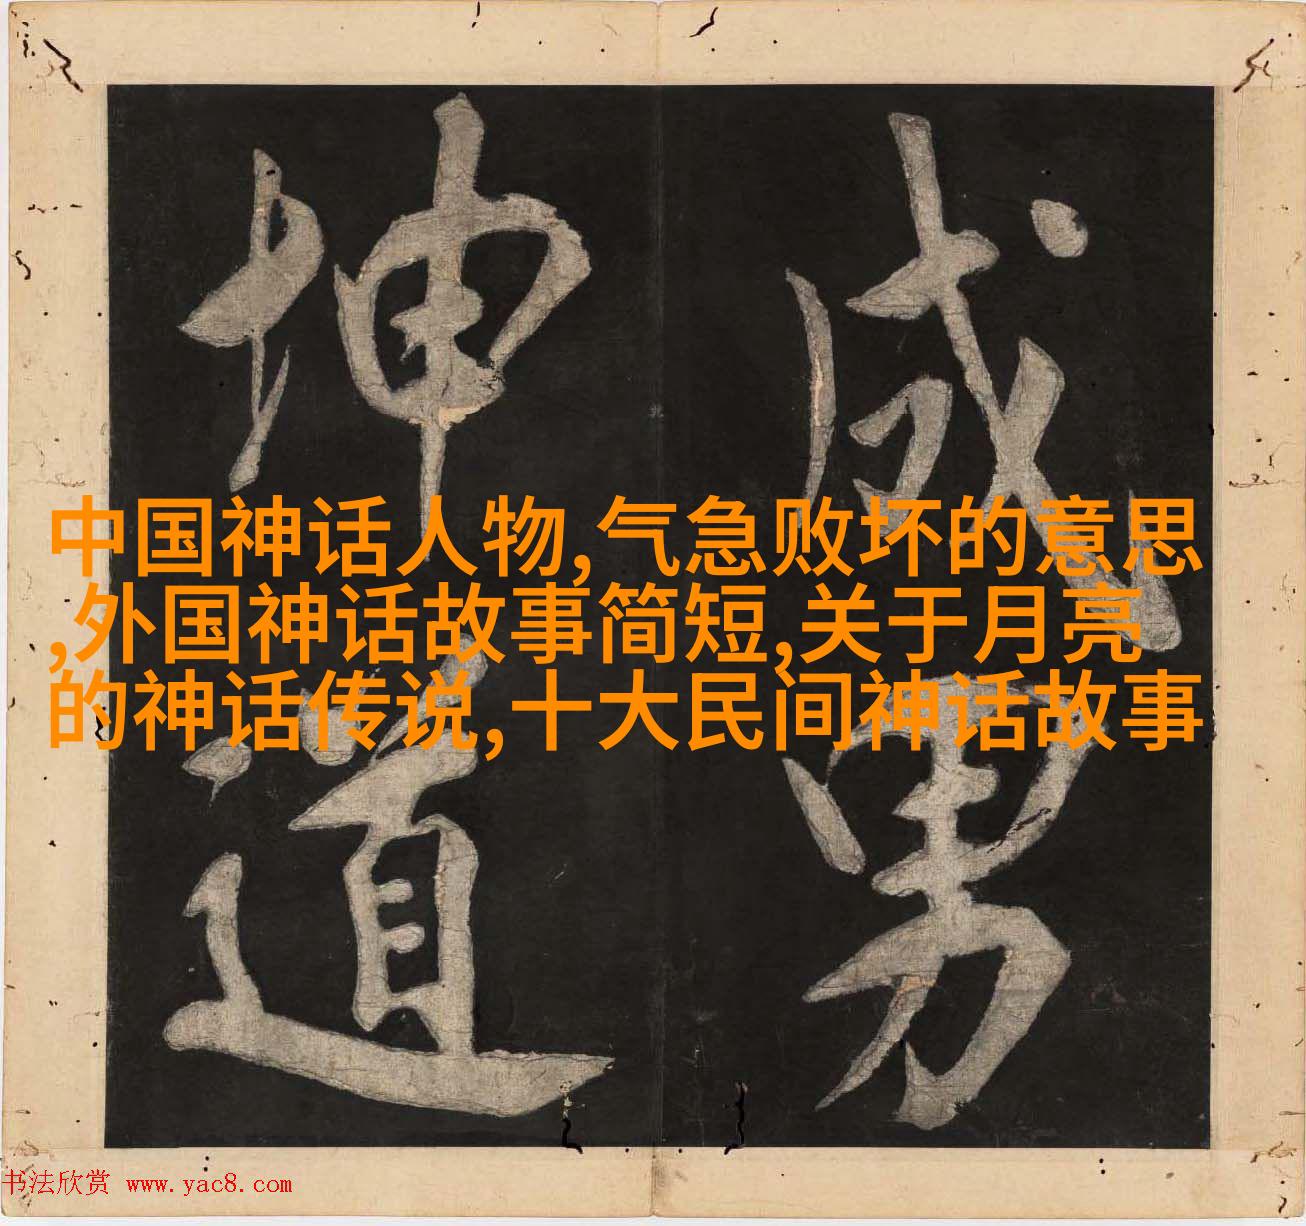 成男
坤道
中国神话人物,气急败坏的意思
,外国神话故事简短,关于月亮
的神话传说,十大民间神话故事
书法欣赏 www.yac8.com